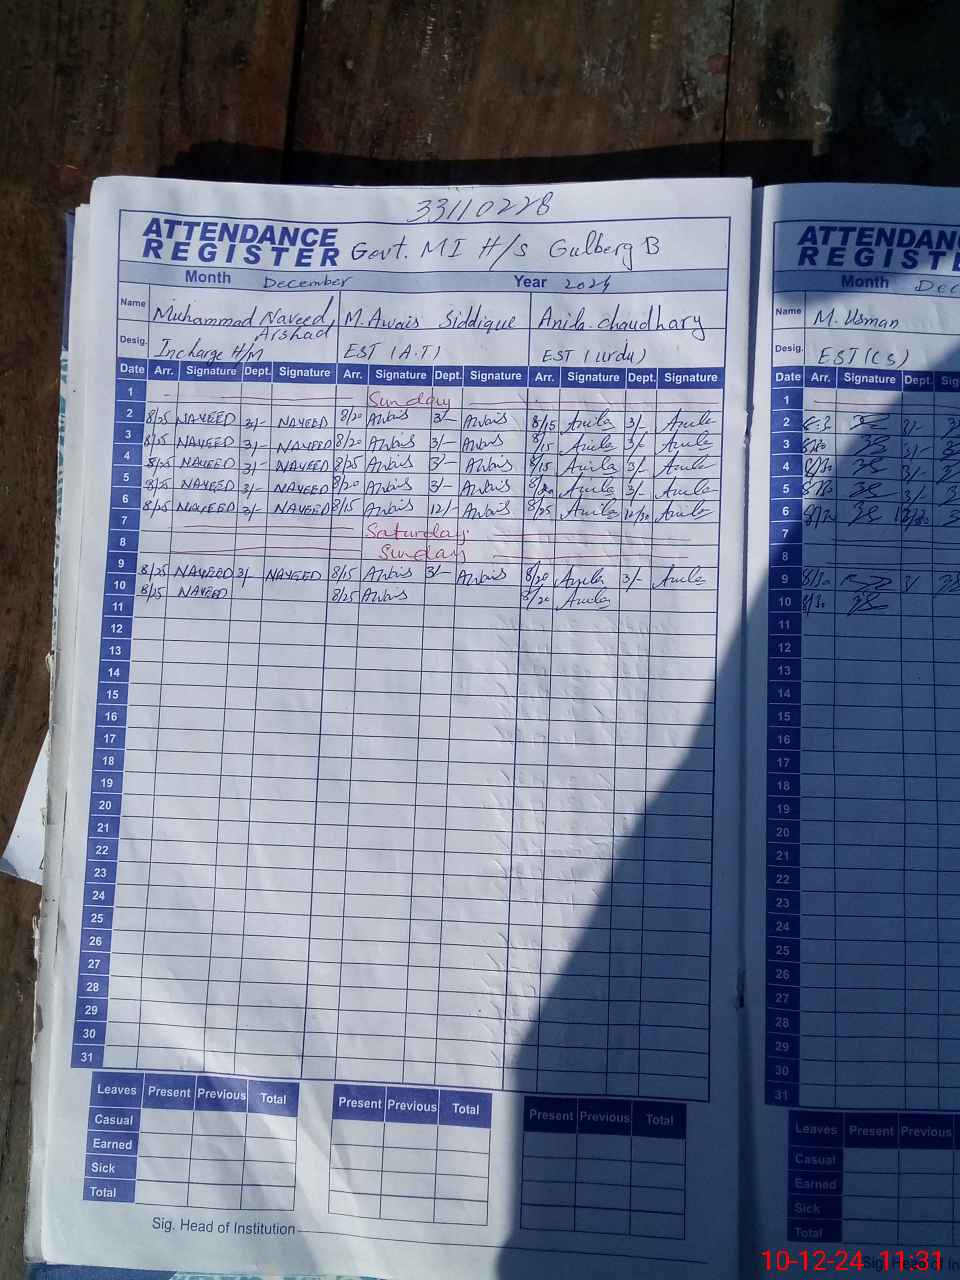 33110228
ATTENDANCE
REGISTER Govt. MI H/s Gulberg B
Month December Year 2024
Name Muhammad Naveed Arshad M. Awais Siddique Anila chaudhary
Desig. Incharge H/M EST (A.T) EST (urdu)
Date Arr. Signature Dept. Signature Arr. Signature Dept. Signature Arr. Signature Dept. Signature
1 Sunday
2 8/25 NAVEED 3/- NAVEED 8/20 Awais 3/- Awais 8/15 Anila 3/- Anila
3 8/25 NAVEED 3/- NAVEED 8/20 Awais 3/- Awais 8/15 Anila 3/- Anila
4 8/25 NAVEED 3/- NAVEED 8/25 Awais 3/- Awais 8/15 Anila 3/- Anila
5 8/25 NAVEED 3/- NAVEED 8/20 Awais 3/- Awais 8/20 Anila 3/- Anila
6 8/25 NAVEED 3/- NAVEED 8/15 Awais 12/- Awais 8/25 Anila 12/30 Anila
7 Saturday
8 Sunday
9 8/25 NAVEED 3/- NAVEED 8/15 Awais 3/- Awais 8/20 Anila 3/- Anila
10 8/25 NAVEED 8/25 Awais 8/20 Anila
11
12
13
14
15
16
17
18
19
20
21
22
23
24
25
26
27
28
29
30
31
Leaves Present Previous Total Present Previous Total Present Previous Total
Casual
Earned
Sick
Total
Sig. Head of Institution
ATTENDAN
REGISTE
Month Dec
Name M. Usman
Desig. EST (CS)
Date Arr. Signature Dept.
1
2 3/-
3 8/30 3/-
4 8/30 3/
5 8/30 3/
6 8/30 12/30
7
8
9 8/30 3/
10 8/30
11
12
13
14
15
16
17
18
19
20
21
22
23
24
25
26
27
28
29
30
31
Leaves Present Previous
Casual
Earned
Sick
Total
Sig. Head of In
10-12-24 11:31